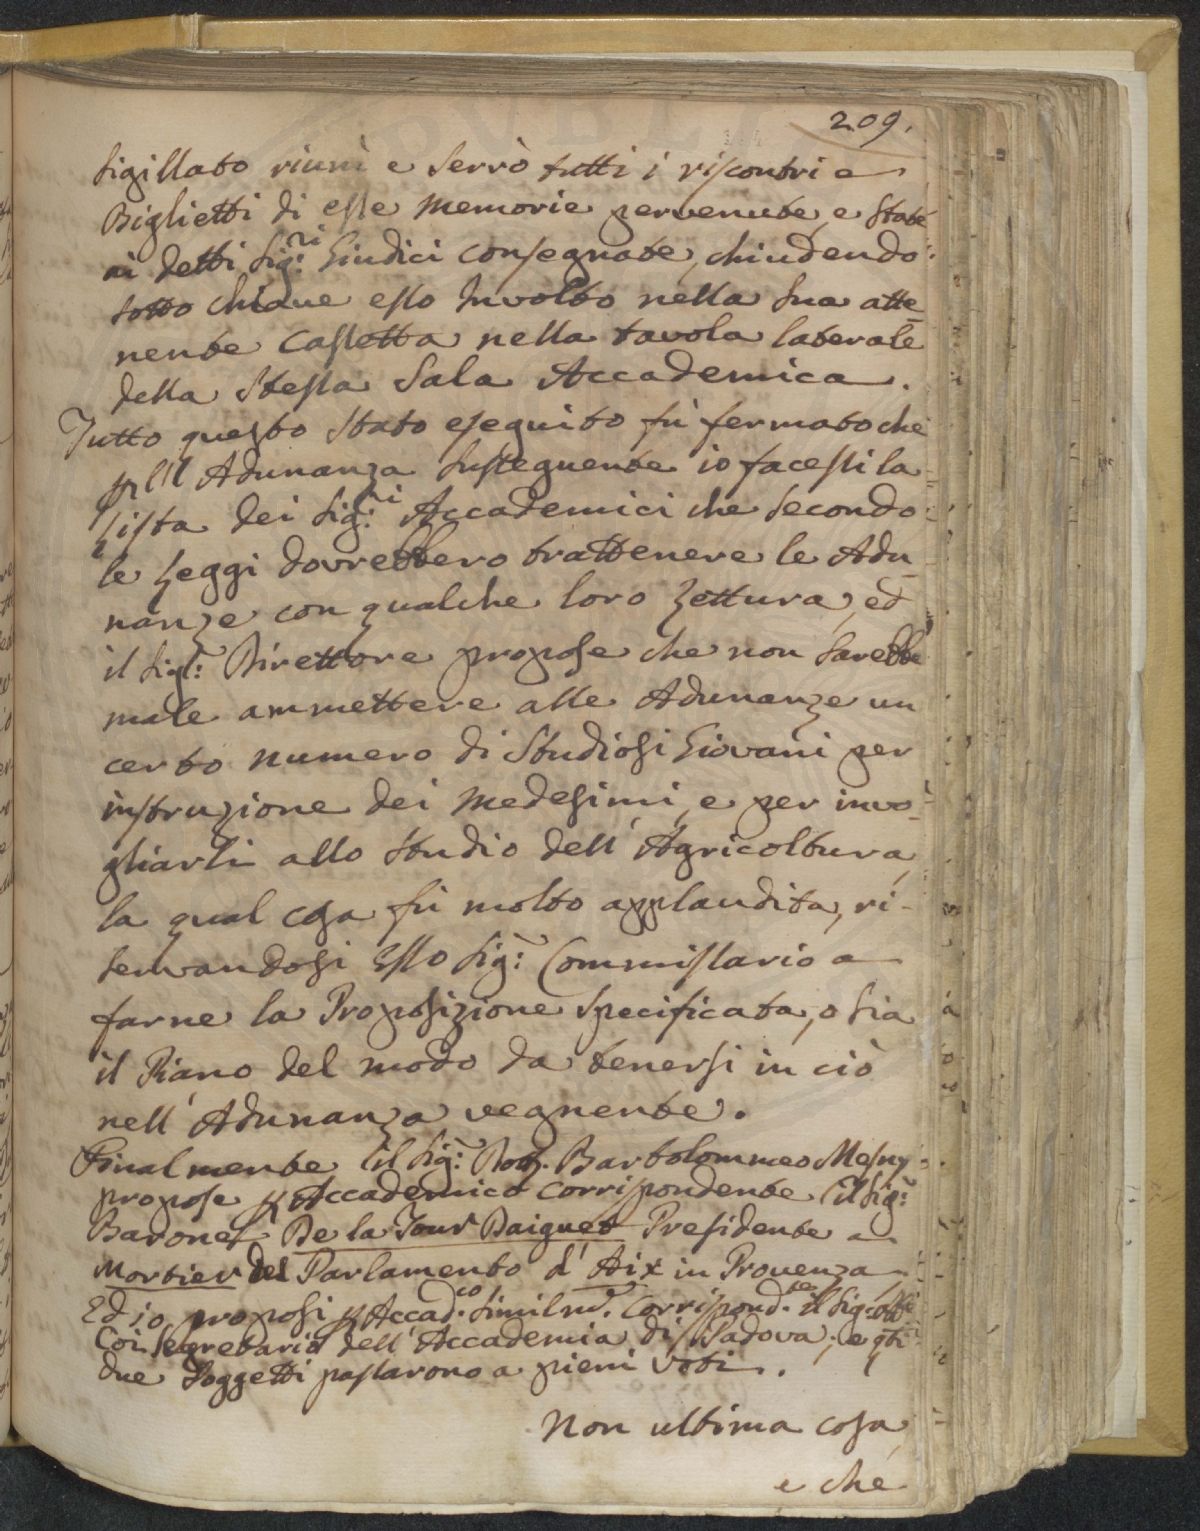 209.
sigillato riunì e serrò tutti i riscontri e
Biglietti di esse Memorie pervenute, e state
ai detti Sig.ri Giudici consegnate, chiudendo
sotto chiave esso Involto nella sua atte
nente Cassetta nella tavola laterale
della stessa Sala Accademica.
Tutto questo stato eseguito fù fermato che
p l'Adunanza susseguente io facessi la
Lista dei Sig.ri Accademici che secondo
le Leggi dovrebbero trattenere le Adu
nanze con qualche loro Lettura, ed
il Sig.: Direttore propose che non sarebbe
male ammettere alle Adunanze un
certo numero di Studiosi Giovani per
instruzione dei Medesimi, e per invo-
gliarli allo studio dell'Agricoltura,
la qual cosa fù molto applaudita, ri-
servandosi Esso Sig: Commissario a
farne la Proposizione specificata, o sia
il Piano del modo da tenersi in ciò
nell'Adunanza vegnente.
Finalmente il Sig: Bartolommeo Mesny
propose p Accademico Corrispondente il Sig:
Barone De la Tour Daigues Presidente a
Mortier del Parlamento d'Aix in Provenza
Ed io proposi p Accad.co similm. Corrispond.te il Sig:
Coi Segretario dell'Accademia di Padova; e
due Soggetti passarono a pieni Voti.
Non ultima cosa
e che